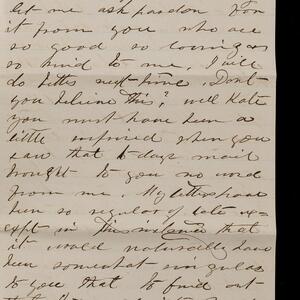 let me ask pardon for
it from you who are
so good so loving so
so kind to me. I will
do better next time. Don't
you believe this? well Kate
you must have been a
little surprised when you
saw that to days mail
brought to you no word
from me. My letters have
been so regular of late ex-
cept in this instance that
it would naturally have
been somewhat singular
to you that to find out